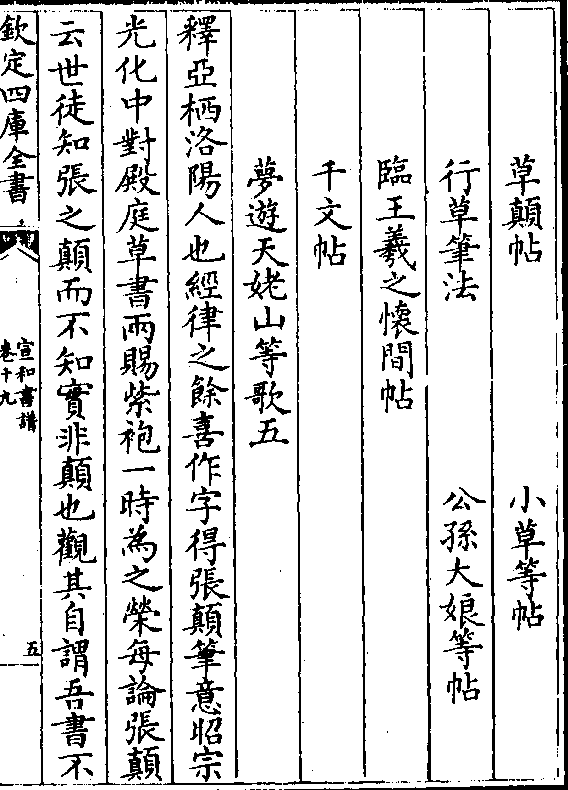 草顛帖　小草等帖
行草筆法　公孫大娘等帖
臨王羲之懷間帖
千文帖
夢遊天姥山等歌五
釋亞栖洛陽人也經律之餘喜作字得張顛筆意昭宗
光化中對殿庭草書兩賜紫袍一時為之榮每論張顛
云世徒知張之顛而不知實非顛也觀其自謂吾書不
欽定四庫全書
宣和書譜
卷十九
五